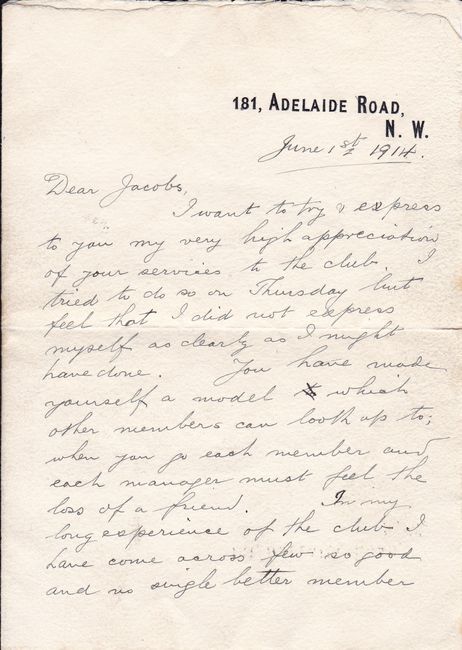 181, ADELAIDE ROAD,
N. W.
June 1st 1914.
Dear Jacobs,
I want to try & express
to you my very high appreciation
of your services to the club. I
tried to do so on Thursday but
feel that I did not express
myself as clearly as I might
have done. You have made
yourself a model to which
other members can look up to;
when you go each member and
each manager must feel the
loss of a friend. In my
long experience of the club I
have come across few so good
and no single better member